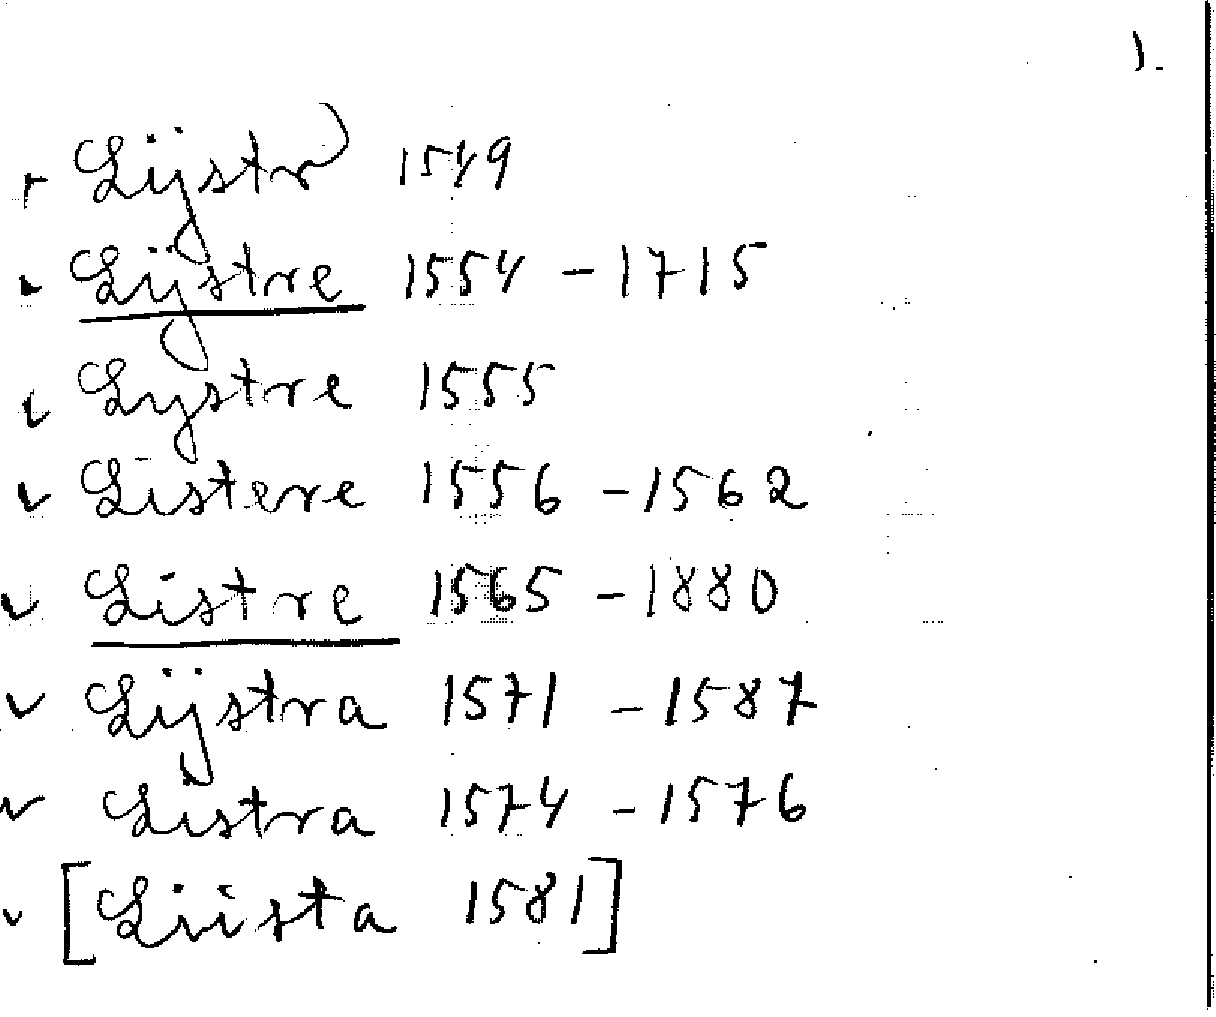 1.
Lijstr) 1549
Lijstre 1554 - 1715
Lystre 1555
Listere 1556 - 1562
Listre 1565 - 1880
Lijstra 1571 - 1587
Listra 1574 - 1576
[Liista 1581]